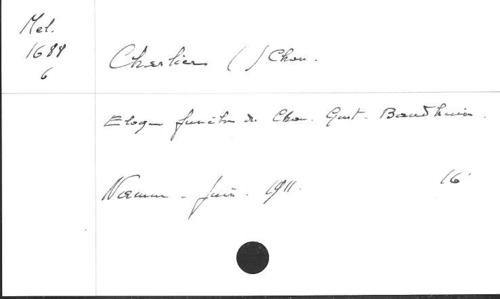 Mél.
1688
6
Charlier ( ) Chan.
Eloge funèbre de Chan. Gust. Baudhuin.
Namur - Juin. 1911.
16°